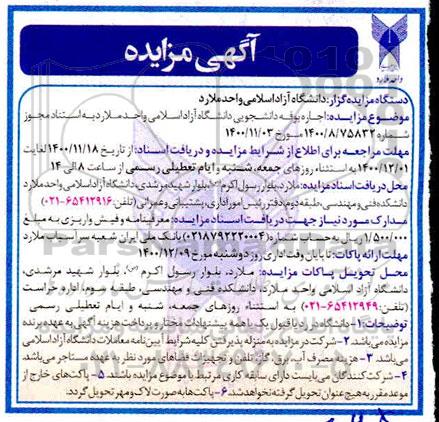 آگهی مزایده
دستگاه مزایده گزار: دانشگاه آزاد اسلامی واحد ملارد
موضوع مزایده: اجاره بوفه دانشجویی دانشگاه آزاد اسلامی واحد ملارد به استناد مجوز
شماره ۱۴۰۰/۸/۷۵۸۳۲ مورخ ۱۴۰۰/۱۱/۰۳
مهلت مراجعه برای اطلاع از شرایط مزایده و دریافت اسناد: از تاریخ ۱۴۰۰/۱۱/۱۸ لغایت
۱۴۰۰/۱۲/۰۱ به استثناء روزهای جمعه، شنبه و ایام تعطیلی رسمی از ساعت ۸ الی ۱۴
محل دریافت اسناد مزایده: ملارد بلوار رسول اکرم (ص) بلوار شهید مرشدی، دانشگاه آزاد اسلامی واحد ملارد
دانشکده فنی و مهندسی، طبقه دوم دفتر رئیس امور اداری، پشتیبانی و عمرانی (تلفن: ۶۵۴۱۲۹۱۶-۰۲۱)
مدارک مورد نیاز جهت دریافت اسناد مزایده: معرفینامه و فیش واریزی به مبلغ
۱/۵۰۰/۰۰۰ ریال به حساب شماره (۰۲۱۸۷۹۲۲۲۰۰۰۴) بانک ملی ایران شعبه سرآسیاب ملارد
مهلت ارائه پاکات: تا پایان وقت اداری روز دوشنبه مورخ ۱۴۰۰/۱۲/۰۹
محل تحویل پاکات مزایده: ملارد، بلوار رسول اکرم (ص)، بلوار شهید مرشدی،
دانشگاه آزاد اسلامی واحد ملارد، دانشکده فنی و مهندسی، طبقه سوم، اداره حراست
(تلفن: ۶۵۴۱۲۹۴۹-۰۲۱) به استثناء روزهای جمعه شنبه و ایام تعطیلی رسمی
توضیحات: ۱- دانشگاه در رد یا قبول یک یا همه پیشنهادات مختار و پرداخت هزینه آگهی به عهده برنده
مزایده می‌باشد. ۲- شرکت در مزایده به منزله پذیرفتن کلیه شرایط آیین نامه معاملات دانشگاه آزاد اسلامی
می‌باشد. ۳- هزینه مصرف آب، برق، گاز، تلفن و تجهیزات فضاهای مورد نظر به عهده مستاجر می‌باشد.
۴- شرکت کنندگان می‌بایست دارای سابقه کاری مرتبط با موضوع مزایده باشند. ۵- پاکت‌های خارج از
موعد مقرر به هیچ عنوان تحویل گرفته نخواهد شد. ۶- پاکت‌ها به صورت لاک و مهر تحویل گردد.